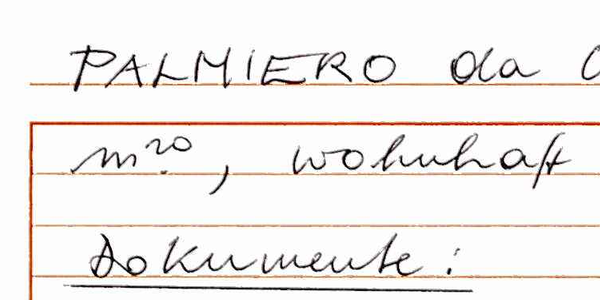 PALMIERO da
m²⁰, wohnhaft
Dokumente: